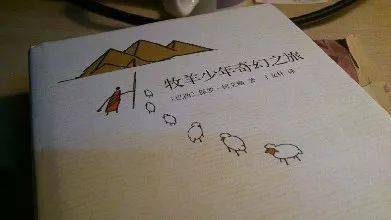 牧羊少年奇幻之旅
[巴西] 保罗·柯艾略 著
丁文林 译